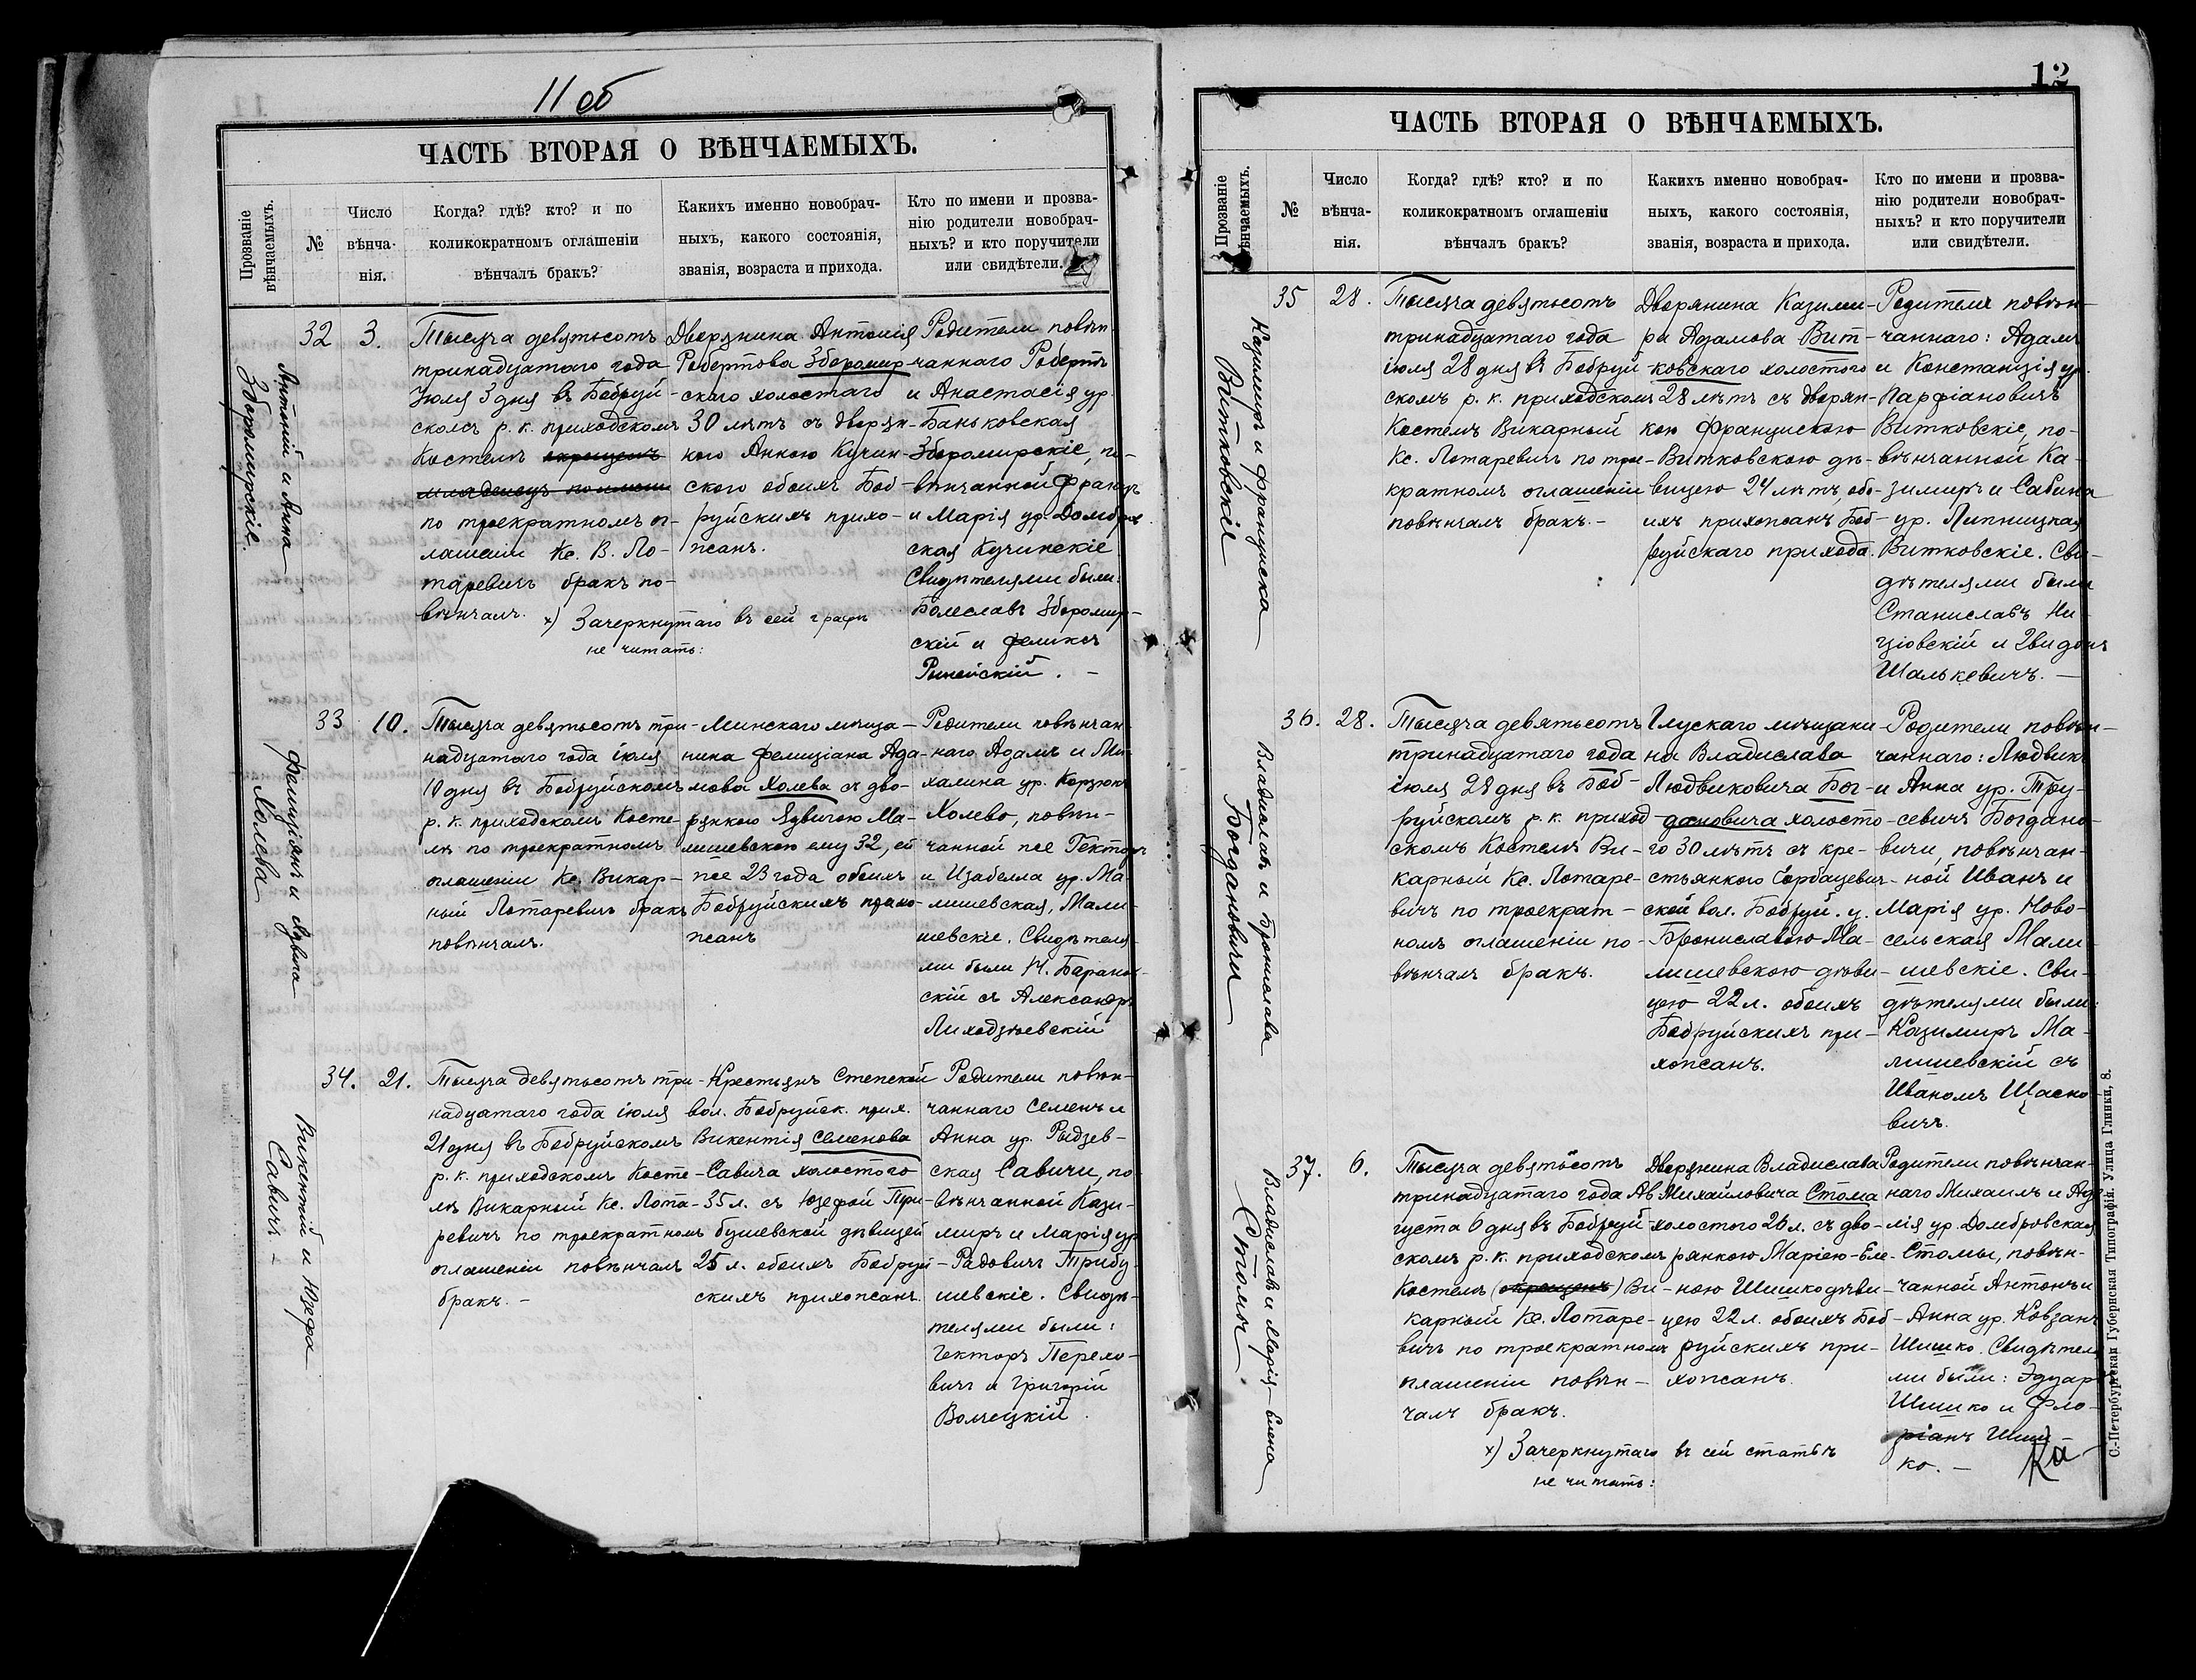 11 об
ЧАСТЬ ВТОРАЯ О ВѢНЧАЕМЫХЪ.
Прозваніе
вѣнчаемыхъ.
№
Число
вѣнча-
нія.
Когда? гдѣ? кто? и по
коликократномъ оглашеніи
вѣнчалъ бракъ?
Какихъ именно новобрач-
ныхъ, какого состоянія,
званія, возраста и прихода.
Кто по имени и прозва-
нію родители новобрач-
ныхъ? и кто поручители
или свидѣтели.
Антоній и Анна
Зборомирскіе.
32
3.
Тысяча девятьсотъ
тринадцатаго года
Іюля 3 дня въ Бобруй-
скомъ р. к. приходскомъ
Костелѣ окрещенъ
младенецъ по имени
по троекратномъ ог-
лашеніи Кс. В. Ло-
таревичъ бракъ по-
вѣнчалъ.
х) Зачеркнутаго въ сей графѣ
не читать:
Дворянина Антонія
Робертова Зборомир-
скаго холостаго
30 лѣтъ съ дворян-
кою Анною Кучин-
ского обоихъ Боб-
руйскихъ прихо-
жанъ.
Родители повѣн-
чаннаго Робертъ
и Анастасія ур.
Баньковская
Зборомирскіе, по-
вѣнчанной Францъ
и Марія ур. Домбров
ская Кучинскіе
Свидѣтелями были:
Болеславъ Зборомир-
скій и Феликсъ
Рынейскій. -
Фелиціянъ и Ядвига
Холева
33
10.
Тысяча девятьсотъ три-
надцатаго года іюля
10 дня въ Бобруйскомъ
р. к. приходскомъ Косте-
лѣ по троекратномъ
оглашеніи Кс. Викар-
ный Лотаревичъ бракъ
повѣнчалъ.
Минскаго мѣща-
нина Фелиціана Ада-
мова Холева съ дво-
рянкою Ядвигою Ма-
лишевскою ему 32, ей
же 23 года обоихъ
Бобруйскихъ прихо-
жанъ
Родители повѣнчан-
наго Адамъ и Ми-
халина ур. Корзюкъ
Холево, повѣн-
чанной же Гекторъ
и Изабелла ур. Ма-
лишевская, Мали-
шевскіе. Свидѣтеля-
ми были М. Баранов-
скій съ Александръ
Лиходзіевскій
Викентій и Юзефа
Савичъ -
34.
21.
Тысяча девятьсотъ три-
надцатаго года іюля
21 дня въ Бобруйскомъ
р. к. приходскомъ Косте-
лѣ Викарный Кс. Лота-
ревичъ по троекратномъ
оглашеніи повѣнчалъ
бракъ. -
Крестьянъ Степской
вол. Бобруйск. прих.
Викентія Семенова
Савича холостого
35 л. съ Юзефой Три-
бушевской дѣвицей
25 л. обоихъ Бобруй-
скихъ прихожанъ.
Родители повѣн-
чаннаго Семенъ и
Анна ур. Рыдзев-
ская Савичи, по-
вѣнчанной Кази-
миръ и Марія ур
Радовичъ Трибу-
шевскіе. Свидѣ-
телями были:
Гекторъ Перехо-
вичъ и Григорій
Волчецкій.
12
ЧАСТЬ ВТОРАЯ О ВѢНЧАЕМЫХЪ.
Прозваніе
вѣнчаемыхъ.
№
Число
вѣнча-
нія.
Когда? гдѣ? кто? и по
коликократномъ оглашеніи
вѣнчалъ бракъ?
Какихъ именно новобрач-
ныхъ, какого состоянія,
званія, возраста и прихода.
Кто по имени и прозва-
нію родители новобрач-
ныхъ? и кто поручители
или свидѣтели.
Казимиръ и Франциска
Витковскія
35
28.
Тысяча девятьсотъ
тринадцатаго года
іюля 28 дня въ Бобруй-
скомъ р. к. приходскомъ
Костелѣ Викарный
Кс. Лотаревичъ по трое-
кратномъ оглашеніи
повѣнчалъ бракъ. -
Дворянина Казими-
ра Адамова Вит-
ковскаго холостого
28 лѣтъ съ дворян-
кою Францискою
Витковскою дѣ-
вицею 24 лѣтъ, обо-
ихъ прихожанъ Боб-
руйскаго прихода.
Родители повѣн-
чаннаго: Адамъ
и Констанція ур.
Парфіановичъ
Витковскіе, по-
вѣнчанной Ка-
зимиръ и Сабина
ур. Липницкая
Витковскіе. Сви-
дѣтелями были
Станиславъ Ни-
ціовскій и Гвидонъ
Шалькевичъ. -
Владиславъ и Бронислава
Богдановичи
36.
28.
Тысяча девятьсотъ
тринадцатаго года
іюля 28 дня въ Боб-
руйскомъ р. к. приход-
скомъ Костелѣ Ви-
карный Кс. Лотаре-
вичъ по троекрат-
номъ оглашеніи по-
вѣнчалъ бракъ.
Глускаго мѣщани-
на Владислава
Людвиковича Бог-
дановича холосто-
го 30 лѣтъ съ кре-
стьянкою Горбацевич-
ской вол. Бобруй. у.
Брониславою Ма-
лишевскою дѣви-
цею 22 л. обоихъ
Бобруйскихъ при-
хожанъ.
Родители повѣн-
чаннаго: Людвикъ
и Анна ур. Тру-
севичъ Богдано-
вичи, повѣнчан-
ной Иванъ и
Марія ур. Ново-
сельская Мали-
шевскіе. Сви-
дѣтелями были:
Казимиръ Ма-
лишевскій съ
Иваномъ Щасно-
вичъ.
Владиславъ и Марія-Елена
Стомы -
37.
6.
Тысяча девятьсотъ
тринадцатаго года Ав
густа 6 дня въ Бобруй-
скомъ р. к. приходскомъ
Костелѣ (окрещенъ) Ви-
карный Кс. Лотаре-
вичъ по троекратномъ
оглашеніи повѣн-
чалъ бракъ.
х) Зачеркнутаго въ сей статьѣ
не читать:
Дворянина Владислава
Михайловича Стома
холостого 26 л. съ дво-
рянкою Маріею-Еле-
ною Шишко дѣви-
цею 22 л. обоихъ Боб-
руйскихъ при-
хожанъ.
Родители повѣнчан-
наго Михаилъ и Аде
лія ур. Домбровская
Стомы, повѣн-
чанной Антонъ и
Анна ур. Ковзанъ
Шишко. Свидѣтеля
ми были: Эдуар
Шишко и Фло-
ріанъ Шиш-
ко. -
С.-Петербургская Губернская Типографія. Улица Глинки, 8.